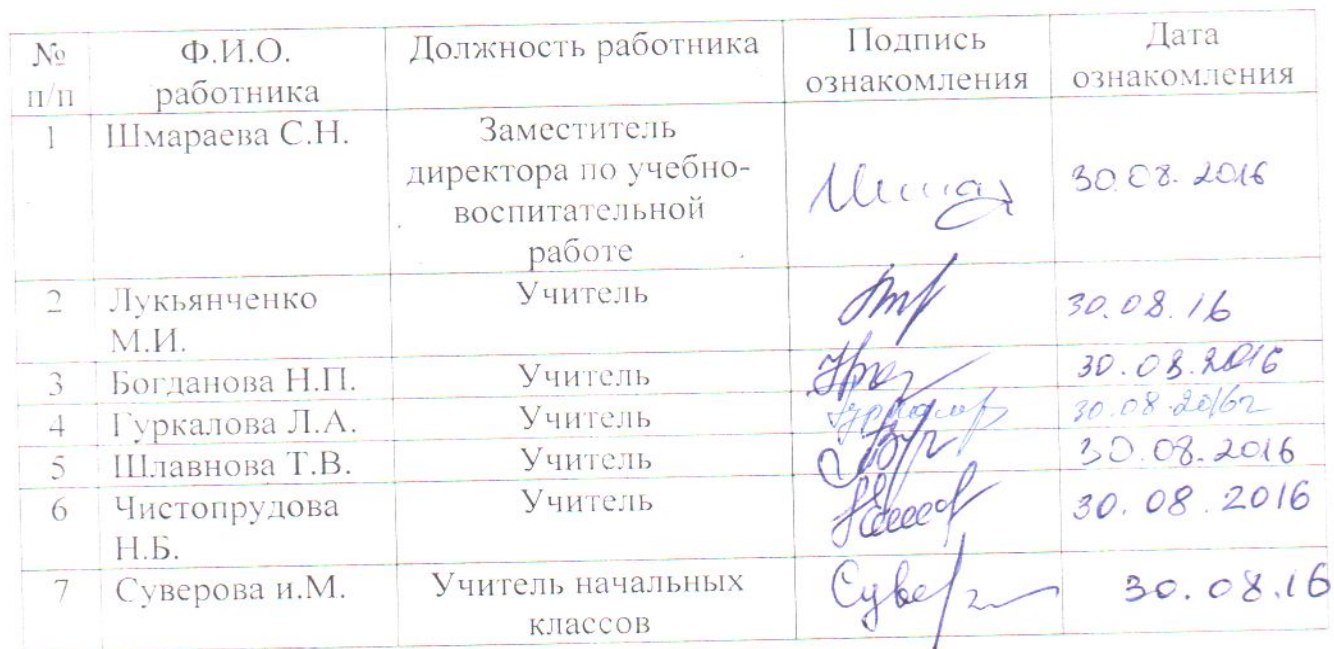 № Ф.И.О. Должность работника Подпись Дата
п/п работника ознакомления ознакомления
1 Шмараева С.Н. Заместитель
директора по учебно-
воспитательной
работе
30.08.2016
2 Лукьянченко Учитель 30.08.16
М.И.
3 Богданова Н.П. Учитель 30.08.2016
4 Гуркалова Л.А. Учитель 30.08.2016г
5 Шлавнова Т.В. Учитель 30.08.2016
6 Чистопрудова Учитель 30.08.2016
Н.Б.
7 Суверова и.М. Учитель начальных 30.08.16
классов